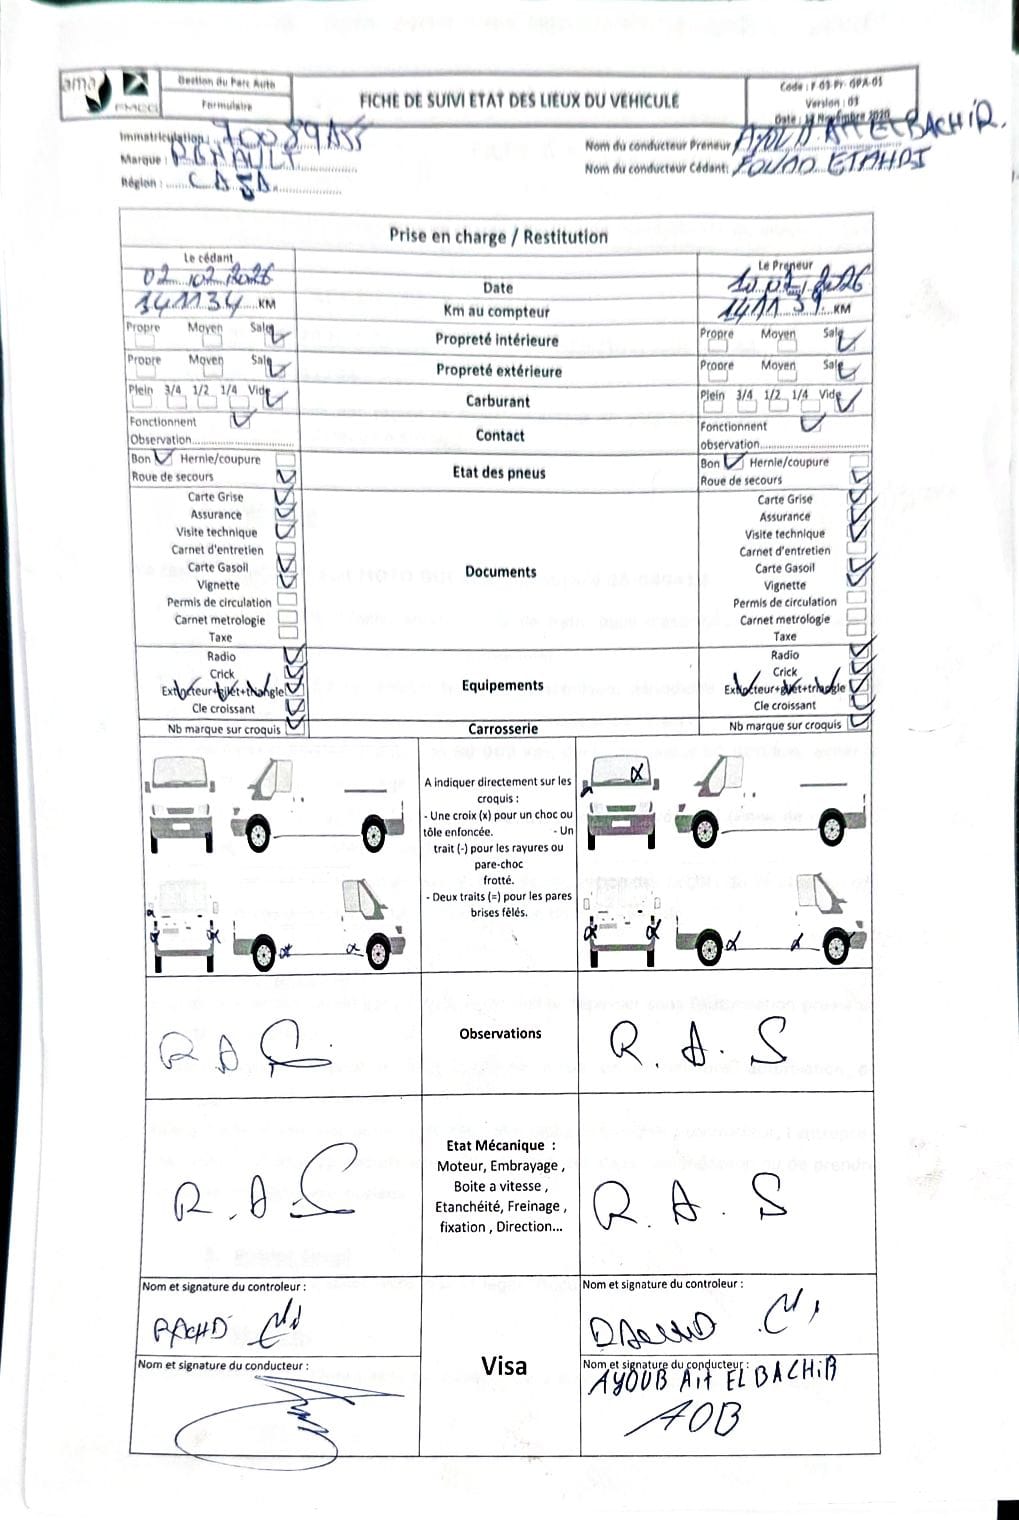 ama
Gestion du Parc Auto
Formulaire
FICHE DE SUIVI ETAT DES LIEUX DU VEHICULE
Code : F-03-Pr-GPA-05
Version : 03
Date : 12 Novembre 2020
Immatriculation :
Marque : RENAULT
Région : CASA
Nom du conducteur Preneur AYOUB AIT EL BACHIR.
Nom du conducteur Cédant: FOUAD
Prise en charge / Restitution
Le cédant
Le Preneur
02 02 2026
Date
2026
141134 KM
Km au compteur
141139 KM
Propre Moyen Sale
Propreté intérieure
Propre Moyen Sale
Propre Moyen Sale
Propreté extérieure
Propre Moyen Sale
Plein 3/4 1/2 1/4 Vide
Carburant
Plein 3/4 1/2 1/4 Vide
Fonctionnent
Observation
Contact
Fonctionnent
observation
Bon Hernie/coupure
Roue de secours
Etat des pneus
Bon Hernie/coupure
Roue de secours
Carte Grise
Assurance
Visite technique
Carnet d'entretien
Carte Gasoil
Vignette
Permis de circulation
Carnet metrologie
Taxe
Documents
Carte Grise
Assurance
Visite technique
Carnet d'entretien
Carte Gasoil
Vignette
Permis de circulation
Carnet metrologie
Taxe
Radio
Crick
Extincteur+gilet+triangle
Cle croissant
Equipements
Radio
Crick
Extincteur+gilet+triangle
Cle croissant
Nb marque sur croquis
Carrosserie
Nb marque sur croquis
A indiquer directement sur les
croquis :
- Une croix (x) pour un choc ou
tôle enfoncée. - Un
trait (-) pour les rayures ou
pare-choc
frotté.
- Deux traits (=) pour les pares
brises fêlés.
R A S
Observations
R. A. S
R. A S
Etat Mécanique :
Moteur, Embrayage,
Boite a vitesse,
Etanchéité, Freinage,
fixation , Direction...
R. A. S
Nom et signature du controleur :
Nom et signature du controleur :
Visa
Nom et signature du conducteur :
Nom et signature du conducteur :
AYOUB Ait EL BACHIR
AOB